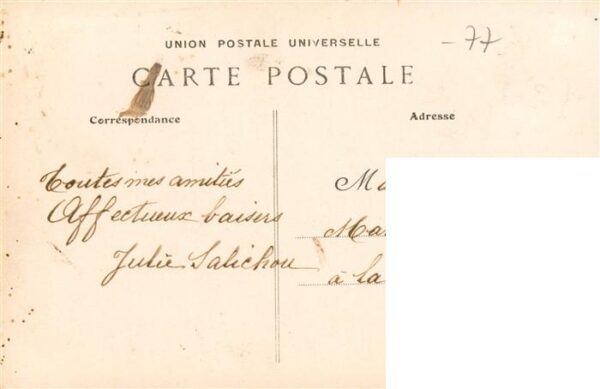 UNION POSTALE UNIVERSELLE
- 77
CARTE POSTALE
Correspondance
Adresse
Toutes mes amitiés
Affectueux baisers
Julie Salichou
à la